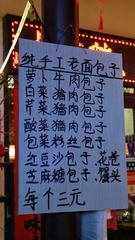 纯手工老面包子
萝卜牛肉包子
白菜猪肉包子
芹菜猪肉包子
酸菜猪肉包子
包菜粉丝包子
红豆沙包子 花卷
芝麻糖包子 馒头
每个三元
味